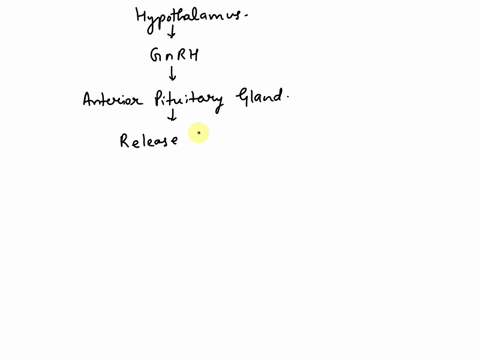 Hypothalamus.
↓
GnRH
↓
Anterior Pituitary Gland.
↓
Release